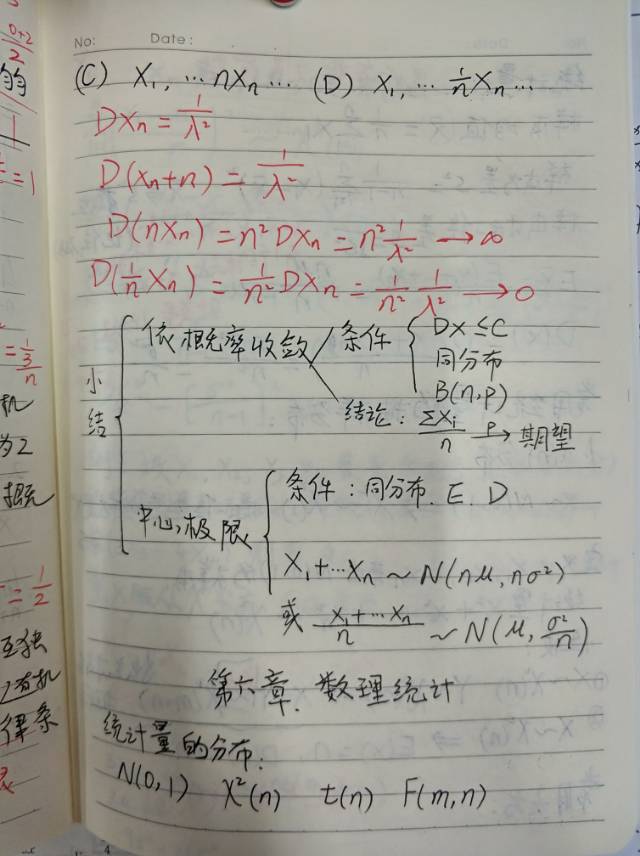 No: Date:
(C) X₁, ⋯ nXₙ ⋯ (D) X₁, ⋯ 1/n Xₙ ⋯
DXₙ = 1/λ²
D(Xₙ+n) = 1/λ²
D(nXₙ) = n² DXₙ = n² 1/λ² → ∞
D(1/n Xₙ) = 1/n² DXₙ = 1/n² 1/λ² → 0
小结
依概率收敛 条件 DX ≤ C
同分布
B(n,p)
结论: ΣXᵢ/n —P→ 期望
中心极限 条件: 同分布. E. D
X₁+⋯Xₙ ~ N(nμ, nσ²)
或 X₁+⋯Xₙ/n ~ N(μ, σ²/n)
第六章. 数理统计
统计量的分布:
N(0,1) χ²(n) t(n) F(m,n)